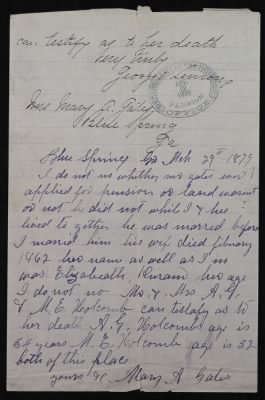 can testify as to her death
very truly
George Lemons
Mrs Mary A. Gales
Blue Spring
Ga
PENSION
Blue Springs Ga Mch 29th 1879
I do not no whether mr gales ever
applied for pension or land warent
or not he did not while I & he
lived to gether he was married before
I married him his wif died febury
1862 her name as well as I no
was Elizabeath her age
I do not no Mr. & Mrs A. G.
& M. E. Holcomb can testafy as to
her death A. G. Holcombs age is
54 years M. E. Holcomb age is 52
both of this place
yours &c Mary A Gales